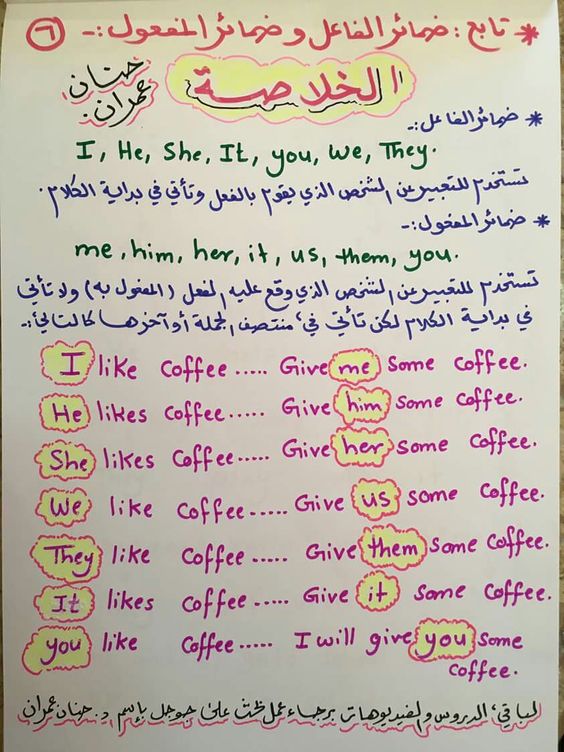 * تابع: ضمائر الفاعل و ضمائر المفعول :- ٦
الخلاصة
حنان
عمران.
* ضمائر الفاعل :-
I, He, She, It, you, We, They.
تستخدم للتعبير عن الشخص الذي يقوم بالفعل وتأتي في بداية الكلام.
* ضمائر المفعول :-
me, him, her, it, us, them, you.
تستخدم للتعبير عن الشخص الذي وقع عليه الفعل (المفعول به) ولا تأتي
في بداية الكلام لكن تأتي في منتصف الجملة أو آخرها كالتالي :-
I like coffee ..... Give me some coffee.
He likes coffee..... Give him some coffee.
She likes coffee..... Give her some coffee.
We like coffee..... Give us some coffee.
They like coffee..... Give them some coffee.
It likes coffee..... Give it some coffee.
you like coffee..... I will give you some
coffee.
لباقي الدروس والفيديوهات برجاء عمل بحث على جوجل بإسم د. حنان عمران